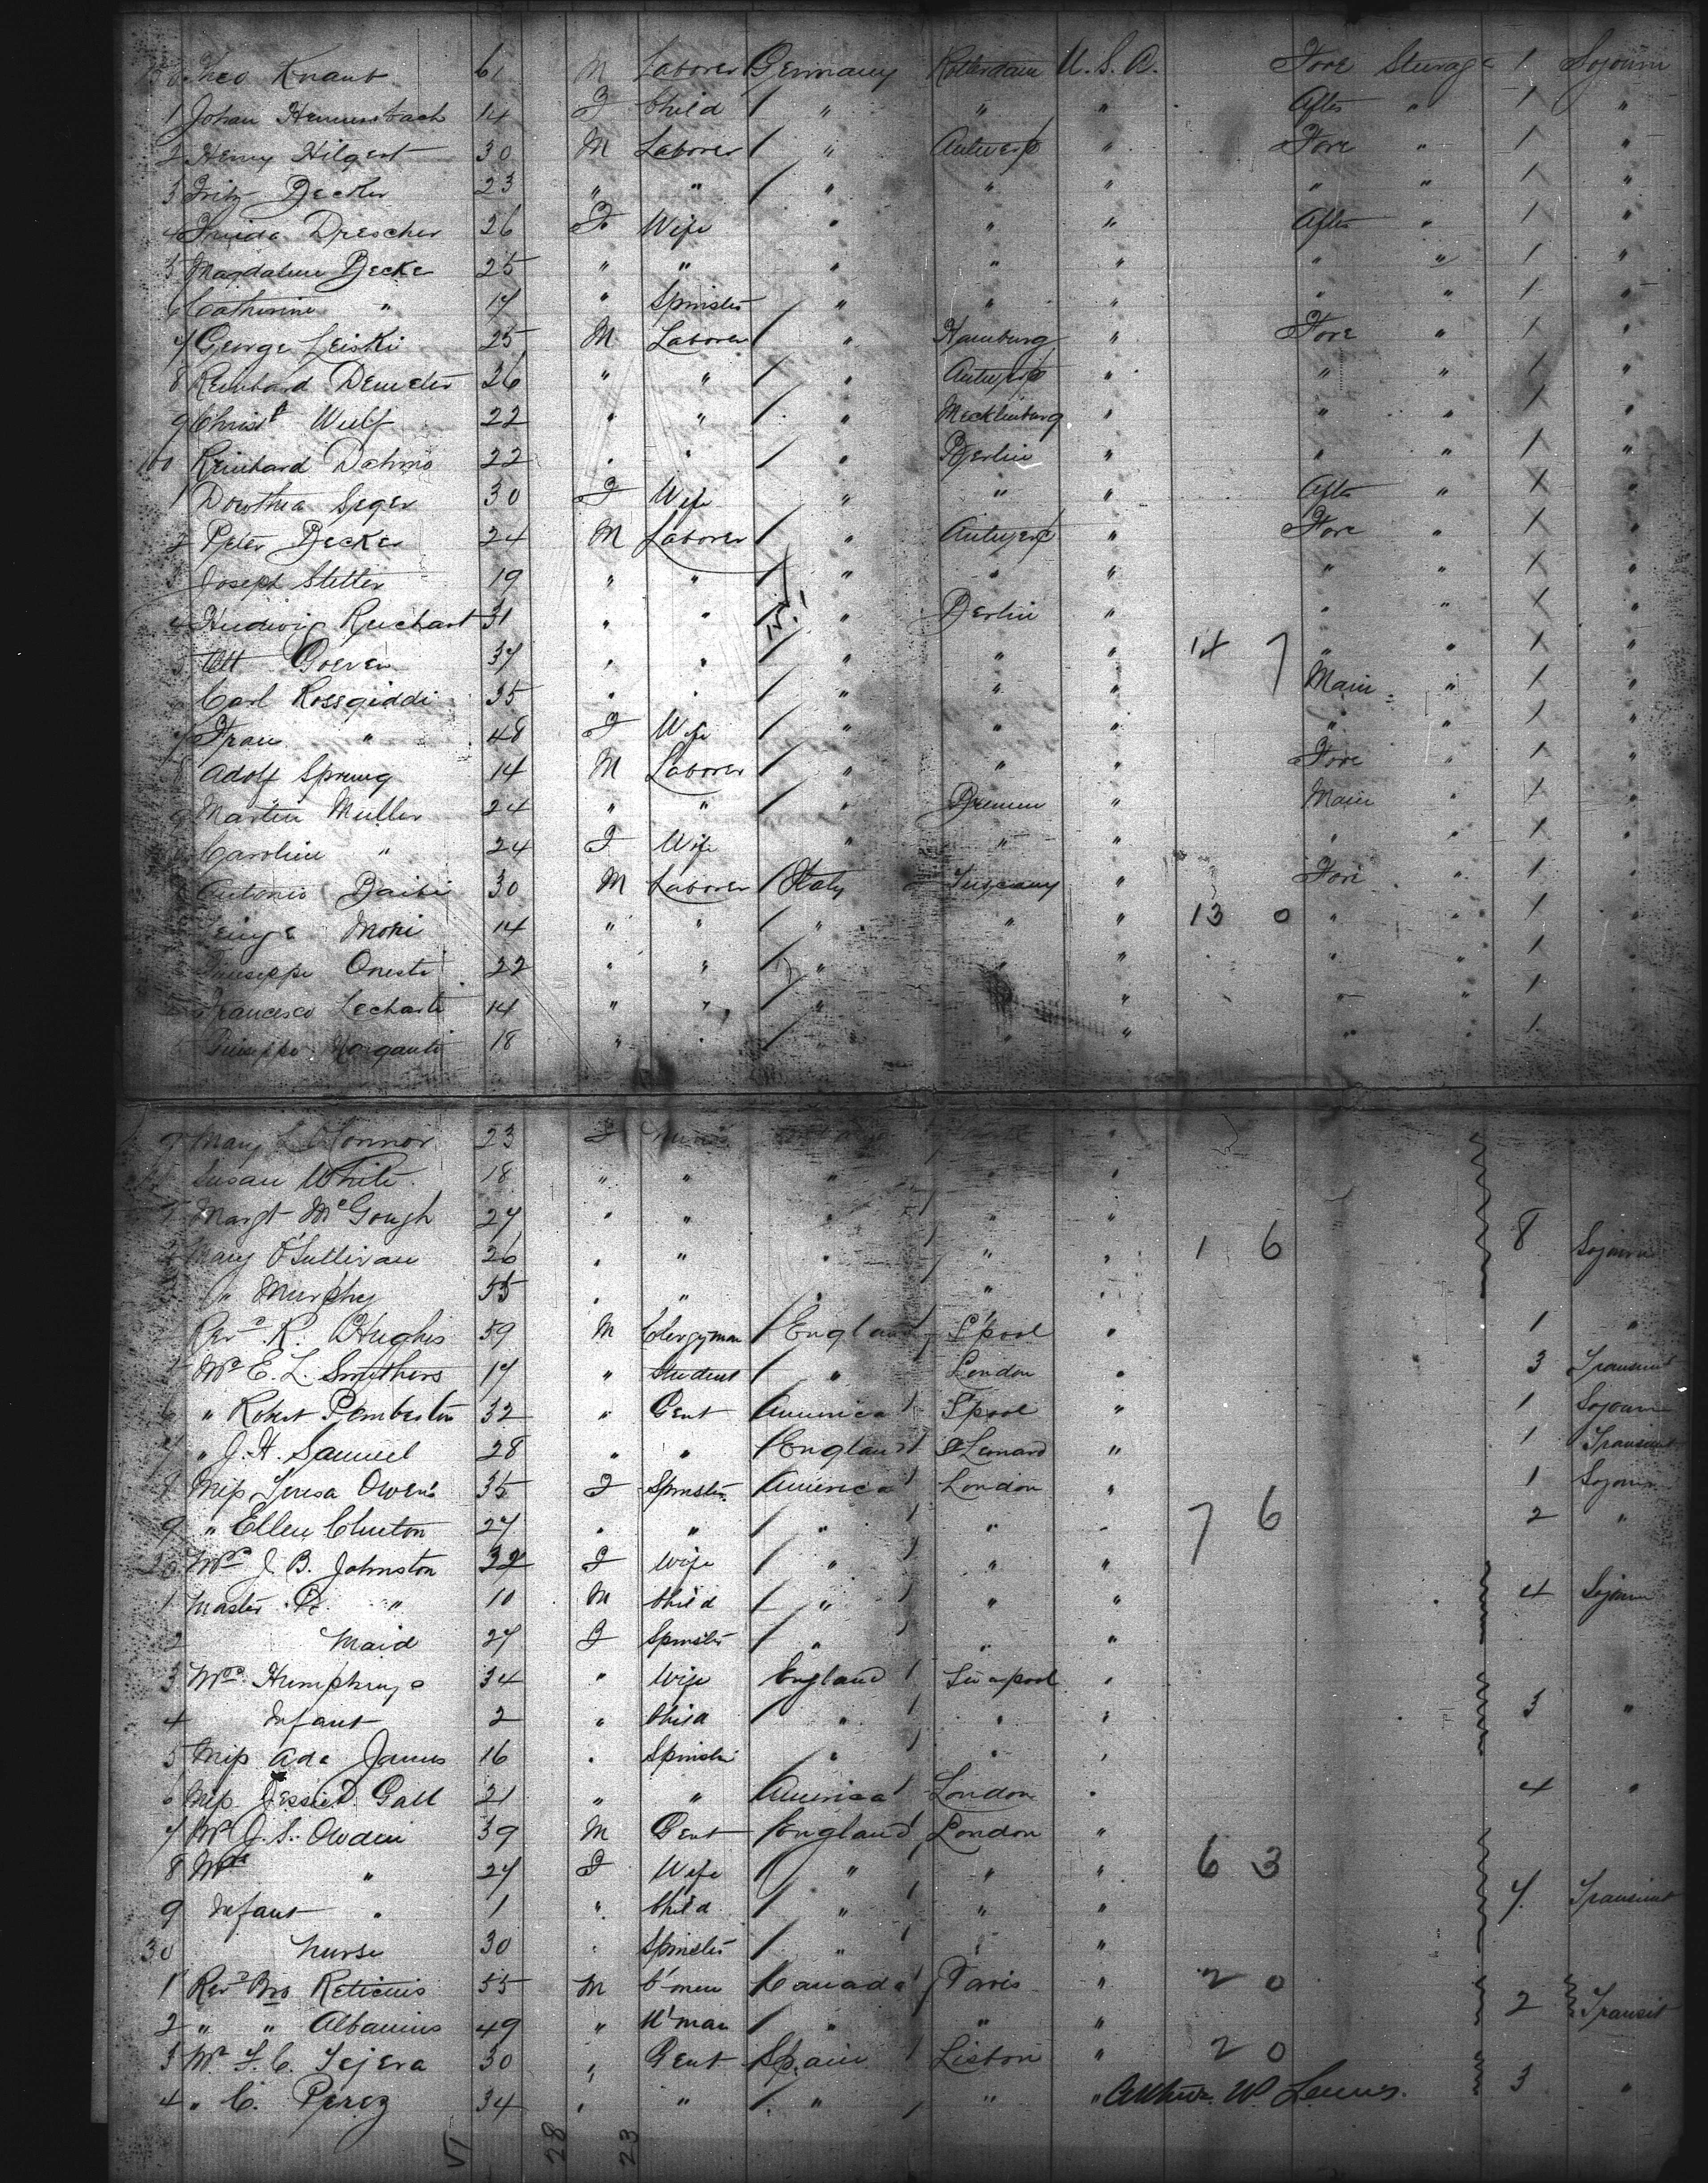 Theo Knaub 61 M Laborer Germany Rotterdam U.S.A. Fore Steerage 1 Sojourn
1 Johan 14 F Child / " " " After " 1 "
2 Henry Hilgert 30 M Laborer / " Antwerp " Fore " 1 "
3 Fritz Becker 23 " " / " " " " " 1 "
4 Frieda Drescher 26 F Wife " " " After " 1 "
5 Magdalene Becke 25 " " " " " " " 1 "
6 Catherine " 17 " Spinster " " " " " 1 "
7 George Leiski 25 M Laborer / " Hamburg " Fore " 1 "
8 Reinhard Demeter 26 " " / " Antwerp " " " 1 "
9 Christ Wulf 22 " " / " Mecklenburg " " " 1 "
100 Reinhard Dahms 22 " " / " Berlin " " " 1 "
1 Dorothea Seger 30 F Wife " " " After " 1 "
2 Peter Becker 24 M Laborer / " Antwerp " Fore " 1 "
3 Joseph Stetter 19 " " / " " " " " 1 "
4 Reichart 31 " " / " Berlin " " " 1 "
5 Ott Goeven 37 " " / " " " 14 7 " " 1 "
Carl Rossgiddi 35 " " / " " " Main " 1 "
7 Frau " 48 F Wife / " " " " " 1 "
8 Adolf Sprung 14 M Laborer / " " " Fore " 1 "
9 Martin Muller 24 " " / " Bremen " Main " 1 "
Caroline " 24 F Wife " " " " " 1 "
Antonio 30 M Laborer / Italy Tuscany " Fore " 1 "
Mori 14 " " / " " " 13 0 " " 1 "
Giuseppe Onesti 22 " " / " " " " " 1 "
Francesco 14 " " / " " " " " 1 "
Giuseppe Morganti 18 " " / " " " " " 1 "
Mary L O'Connor 23 F "
Susan White 18 " " " " "
Margt McGough 27 " " " " "
Mary O'Sullivan 26 " " " " " 1 6 8 Sojourn
" Murphy 55 " " " " "
Revd R. Hughes 59 M Clergyman / England L'pool " 1 "
Mr E. L. Smithers 17 " Student / " London " 3 Transient
6 " Robert Pemberton 32 " Gent America L'pool " 1 Sojourn
7 " J. H. Samuel 28 " " / England St Leonard " 1 Transient
8 Miss Teresa Owens 35 F Spinster America London " 1 Sojourn
9 " Ellen Clinton 27 " " / " " " 7 6 2 "
20 Mrs J. B. Johnston 32 F Wife / " " "
1 Master P. " 10 M Child / " " " 4 Sojourn
2 Maid 27 F Spinster / " " "
3 Mrs Humphreys 34 " Wife England Liverpool "
4 Infant 2 " Child " " " 3 "
5 Miss Ada James 16 " Spinster " " "
6 Miss Jessie D. Gall 21 " " America London " 4 "
7 Mr J. S. 39 M Gent / England London "
8 Mrs " 27 F Wife / " " " 6 3
9 Infant " 1 " Child / " " " 4 Transient
30 Nurse 30 " Spinster / " " "
1 Revd Bro 55 M C'man Canada Paris " 2 0
2 " " Albanius 49 " " " " 2 Transit
3 Mr F. C. Tejera 30 " Gent Spain Lisbon " 2 0
4 " C. Perez 34 " " / " " " Arthur W. Lewis. 3 "
VI 28 23